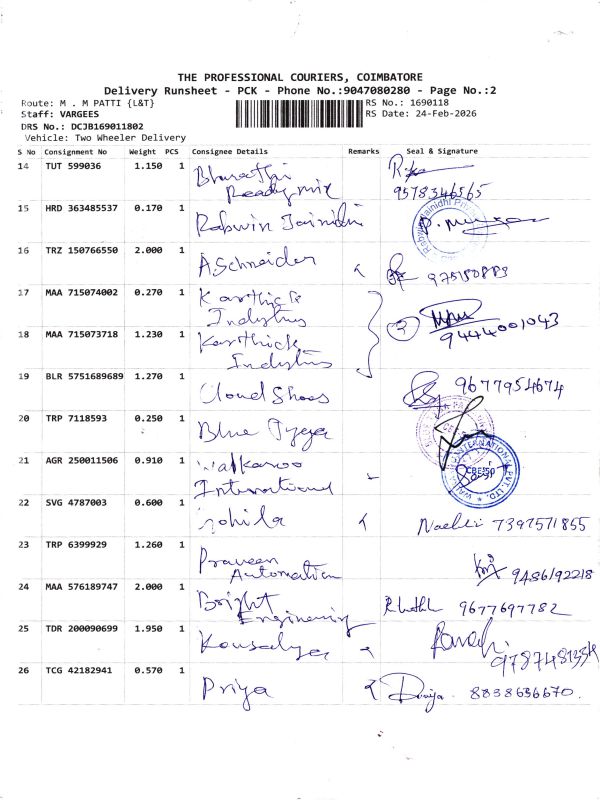 THE PROFESSIONAL COURIERS, COIMBATORE
Delivery Runsheet - PCK - Phone No.:9047080280 - Page No.:2
Route: M . M PATTI {L&T}
RS No.: 1690118
Staff: VARGEES
RS Date: 24-Feb-2026
DRS No.: DCJB169011802
Vehicle: Two Wheeler Delivery
S No Consignment No Weight PCS Consignee Details Remarks Seal & Signature
14 TUT 599036 1.150 1 Bharathi
Readymix 9578346565
15 HRD 363485537 0.170 1 Rabwin Jainidhi
16 TRZ 150766550 2.000 1 A.Schneider
17 MAA 715074002 0.270 1 Karthick
Industries 9444001043
18 MAA 715073718 1.230 1 Karthick
Industries
19 BLR 5751689689 1.270 1 Cloud Shoes 9677954674
20 TRP 7118593 0.250 1 Blue
21 AGR 250011506 0.910 1 Walkaroo
International
22 SVG 4787003 0.600 1 7397571855
23 TRP 6399929 1.260 1 Praveen
Automation 9486192218
24 MAA 576189747 2.000 1 Bright
Engineering 9677697782
25 TDR 200090699 1.950 1 Kousalya
26 TCG 42182941 0.570 1 Priya 8838636670